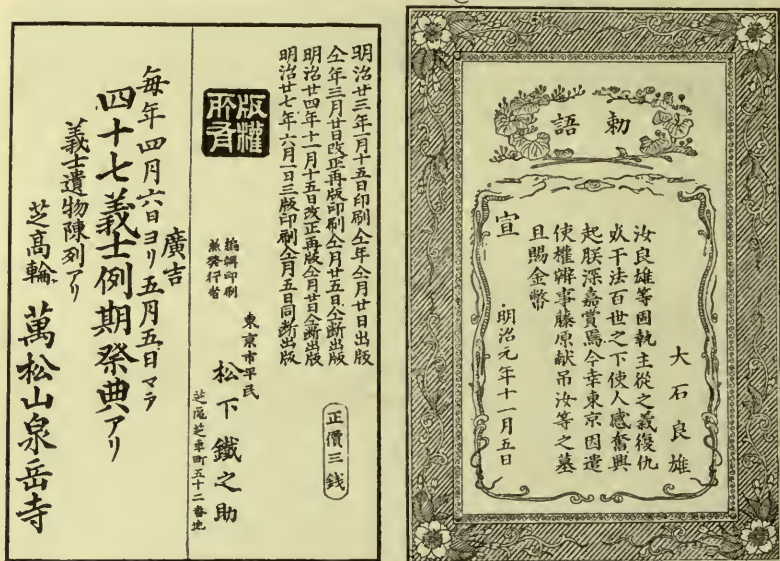 勅語
大石良雄
汝良雄等固執主從之義復仇
死于法百世之下使人感奮興
起朕深嘉賞焉今幸東京因遣
使權辨事藤原献吊汝等之墓
且賜金幣
宣
明治元年十一月五日
明治廿三年一月十五日印刷仝年仝月廿日出版
仝年三月廿日改正再版印刷仝月廿五日仝断出版
明治廿四年十一月十五日改正再版仝月廿日仝断出版
明治廿七年六月一日三版印刷仝月五日同断出版
正價三錢
版權所有
編輯印刷
兼発行者
東京市平民
松下鐵之助
芝區芝車町五十二番地
廣吉
每年四月六日ヨリ五月五日マデ
四十七義士例期祭典アリ
義士遺物陳列アリ
芝髙輪
萬松山泉岳寺